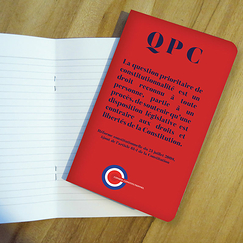 QPC
La question prioritaire de
constitutionnalité est un
droit reconnu à toute
personne, partie à un
procès, de soutenir qu'une
disposition législative est
contraire aux droits et
libertés de la Constitution.
Réforme constitutionnelle du 23 juillet 2008,
article 61-1 de la Constitution